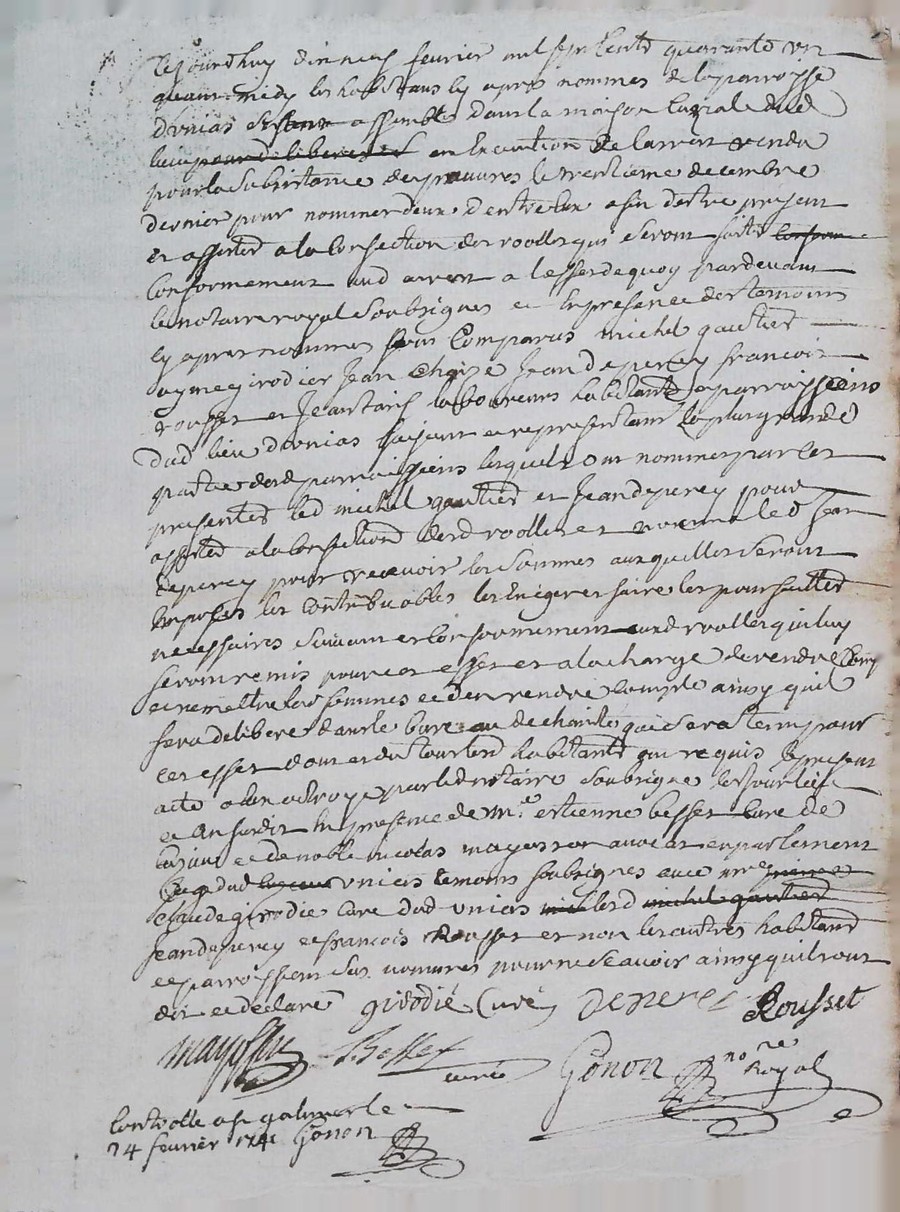 Cejourdhuy dixneuf fevrier mil sept cents quarante un
avant midy les habitans cy apres nommés de la parroisse
dunias assemblés dans la maison curiale dud
lieu pour deliberer en Execution de larrest rendu
pour la subsistance des pauvres le trentieme decembre
dernier pour nommer deux dentreux afin destre present
et assister a la confection des roolles qui seront faits
Conformement aud arrest a leffet de quoy pardevant
le notaire royal soubsigné et En presence des temoins
cy apres nommés sont Comparus michel gautier
aymé girodier Jean chaize Jean deperey francois
rousset et Jean laboureurs habitants et parroissiens
dud lieu dunias faisant et representant la plus grande
partie desd parroissiens lesquels ont nommer par ces
presentes led michel gautier et Jean deperey pour
assister a la confection desd roolles et nomme led Jean
deperey pour recevoir les sommes auxquelles seront
Imposés les contribuables les Exiger et faire les poursuittes
necessaires suivant et conformement auxd roolles qui luy
seront remis pour cet effet et a la charge de rendre Comp
et remettre lesd sommes et den rendre compte ainsy quil
sera delibere dans le bureau de charité qui sera tenu pour
cet effet dont et du tout lesd habitants ont requis le present
acte a eux octroyé par led notaire soubsigné les jour lieu
et An susdit En presence de mre estienne besset curé de
et de noble nicolas mayosson avocat en parlement
dud unias temoins soubsignes avec mre
claude girodie curé dud unias lesd michel gautier
Jean deperey et francois Rousset et non les autres habitans
et parroissiens sus nommés pour ne scavoir ainsy quils ont
dit et declaré girodié Curé Deperey Rousset
Besset
curé Gonon no re Royal
Controlle a St galmier le
24 fevrier 1741 Gonon